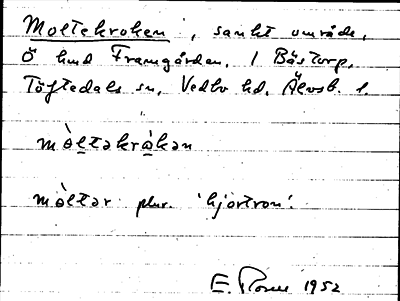 Moltekroken, sankt område,
Ö hmd Framgården, 1 Bästorp,
Töftedals sn, Vedbo hd, Älvsb. l.
mòltəkrò̱kən
mòltər plur. 'hjortron'.
E. 1952